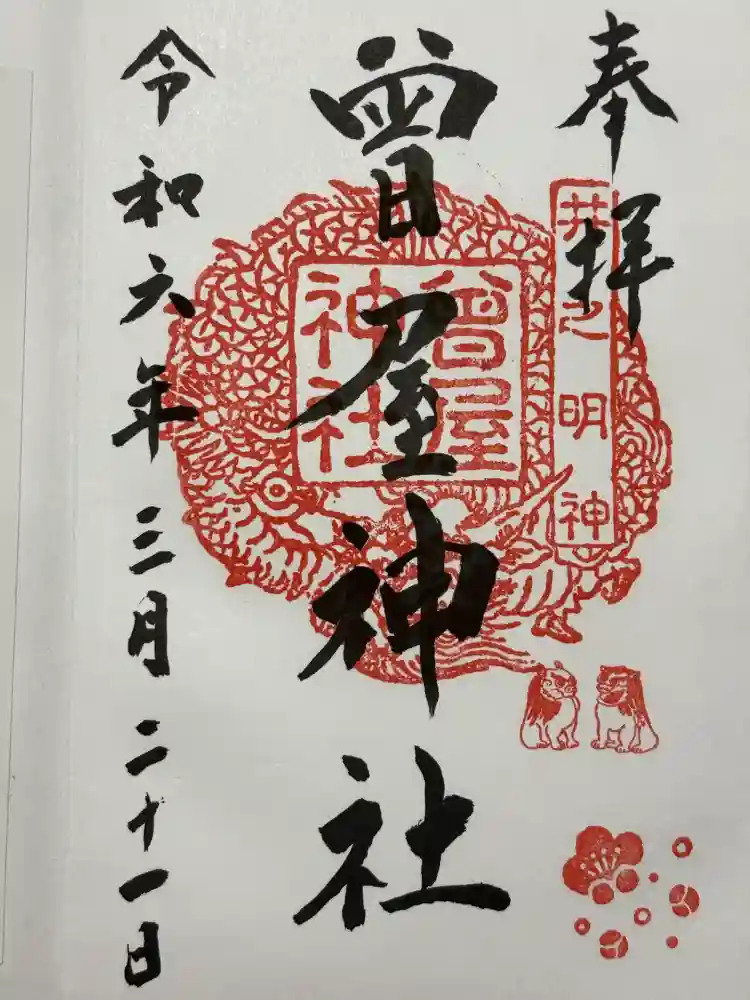 奉拝
井之明神
曾屋神社
曾屋神社
令和六年三月二十一日